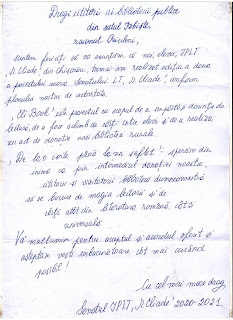 Dragi cititori ai bibliotecii publice
din satul Zăbiște,
raionul Orhei,
suntem fericiți să vă anunțăm că noi, elevii, IPLT
„M. Eliade”, din Chișinău, tocmai am realizat ediția a doua
a proiectului nostru Senatului LT, „M. Eliade”, conform
planului nostru de activitate.
Book” este proiectul cu scopul de a împărtăși dorința de
lectură, de a face schimb de cărți între elevi și de a realiza
un act de donație unei biblioteci rurale.
„De la o carte până la un suflet” - sperăm din
inimă ca prin intermediul donației noastre,
cititorii și vizitatorii bibliotecii dumneavoastră
să se bucure de magia lecturii și de
cărți atât din literatura română, cât și
universală.
Vă mulțumim pentru acceptul și acordul oferit și
așteptăm vești îmbucurătoare cât mai curând
posibil!
Cu cel mai mare drag,
Senatul IPLT „M. Eliade” 2020-2021